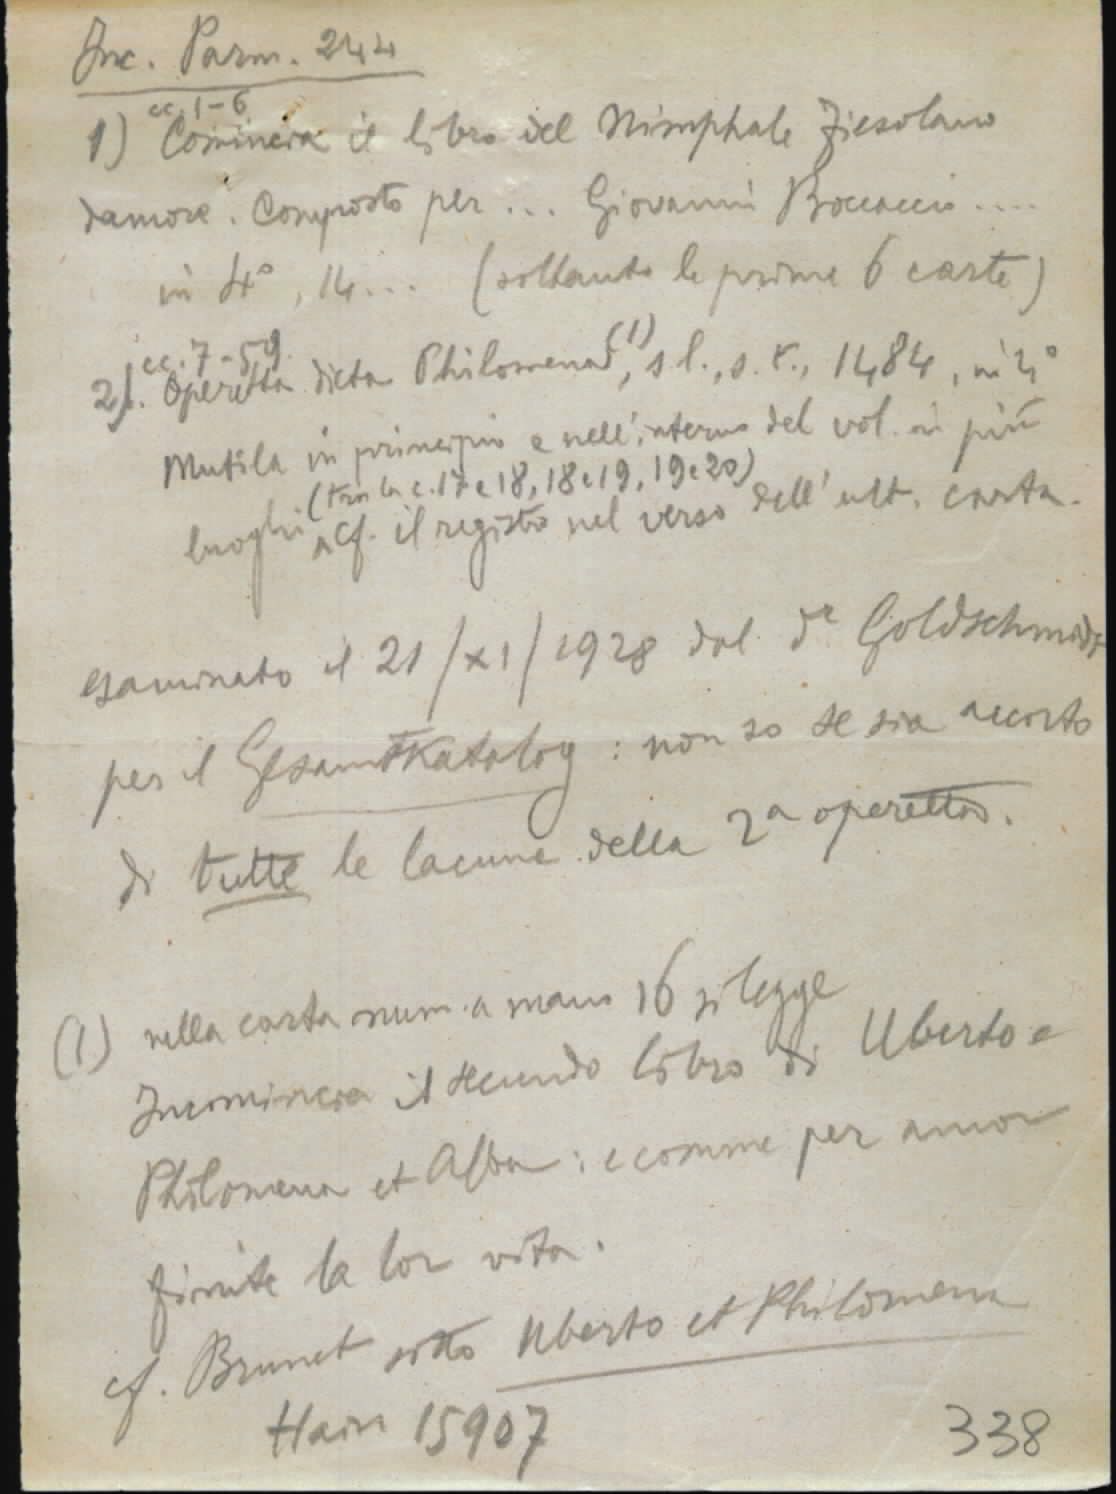 Inc. Parm. 244
cc. 1-6
1) Comincia il libro del Nimphale Fiesolano
damore. Composto per ... Giovanni Boccaccio ....
in 4°, 14... (soltanto le prime 6 carte)
cc. 7-59
2). Operetta dicta Philomena (1), s. l., s. t., 1484, in 4°
Mutila in principio e nell'interno del vol. in più
(tra la c. 17 e 18, 18 e 19, 19 e 20)
luoghi cf. il registro nel verso dell'ult. carta.
esaminato il 21/XI/1928 dal dr Goldschmidt
per il Gesamtkatalog: non so se sia accorto
di tutte le lacune della 2a operetta.
(1) nella carta num. a mano 16 si legge
Incomincia il secundo libro di Uberto e
Philomena et Alba: e comme per amor
finite la lor vita.
cf. Brunet sotto Uberto et Philomena
Hain 15907
338